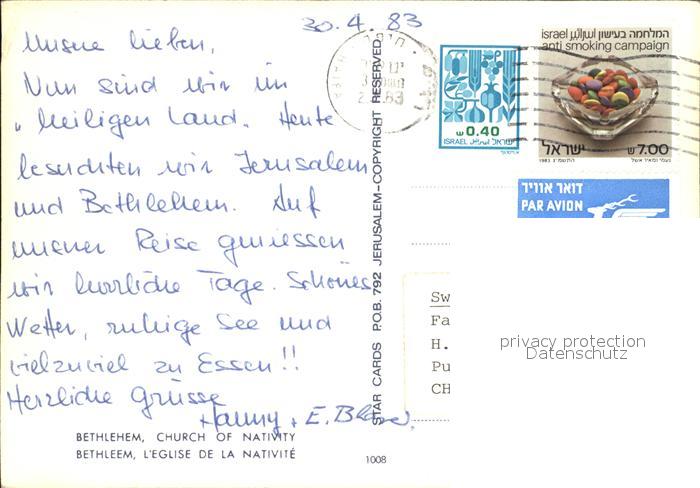 30.4.83
Unsere lieben,
Nun sind wir im
"heiligen Land. Heute
besuchten wir Jerusalem
und Bethlehem. Auf
unserer Reise geniessen
wir herrliche Tage. Schönes
Wetter, ruhige See und
vielzuviel zu Essen!!
Herzliche Grüsse
Hanny + E.
BETHLEHEM, CHURCH OF NATIVITY
BETHLEEM, L'EGLISE DE LA NATIVITÉ
1008
STAR CARDS P.O.B. 792 JERUSALEM–COPYRIGHT RESERVED
חיפה
HAIFA
₪ 0.40
ISRAEL اسرائيل ישראל
המלחמה בעישון اسرائيل israel
anti smoking campaign
ישראל ₪7.00
1983 התשמ"ג
דואר אוויר
PAR AVION
Sw
Fa
H.
Pu
CH
privacy protection
Datenschutz